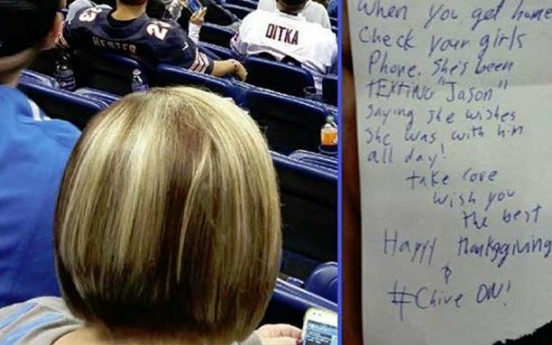 HESTER
23
DITKA
When you get home
Check your girls
Phone. She's been
tEXTiNG "Jason"
Saying she wishes
She was with him
all day!
take care
wish you
the best
Happy thanksgiving
&
#Chive ON!